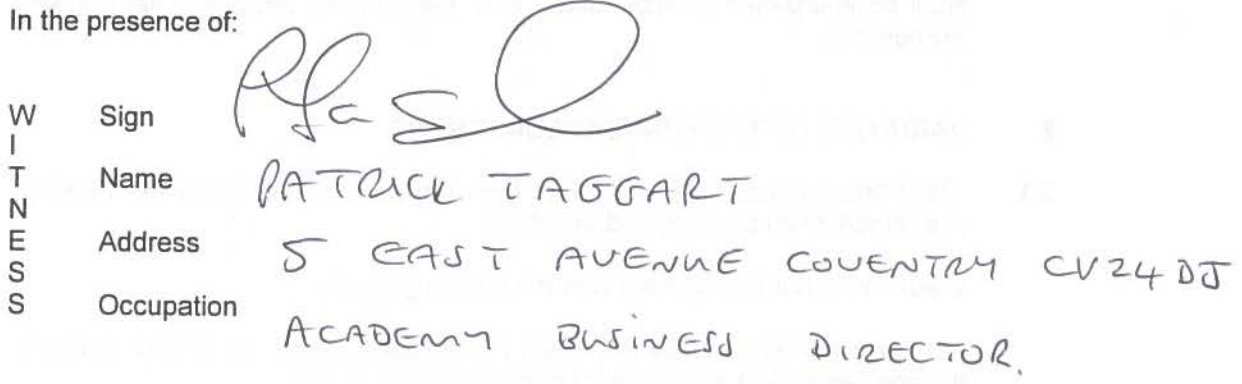 In the presence of:
WITNESS
Sign
Name PATRICK TAGGART
Address 5 EAST AVENUE COVENTRY CV24DJ
Occupation ACADEMY BUSINESS DIRECTOR.